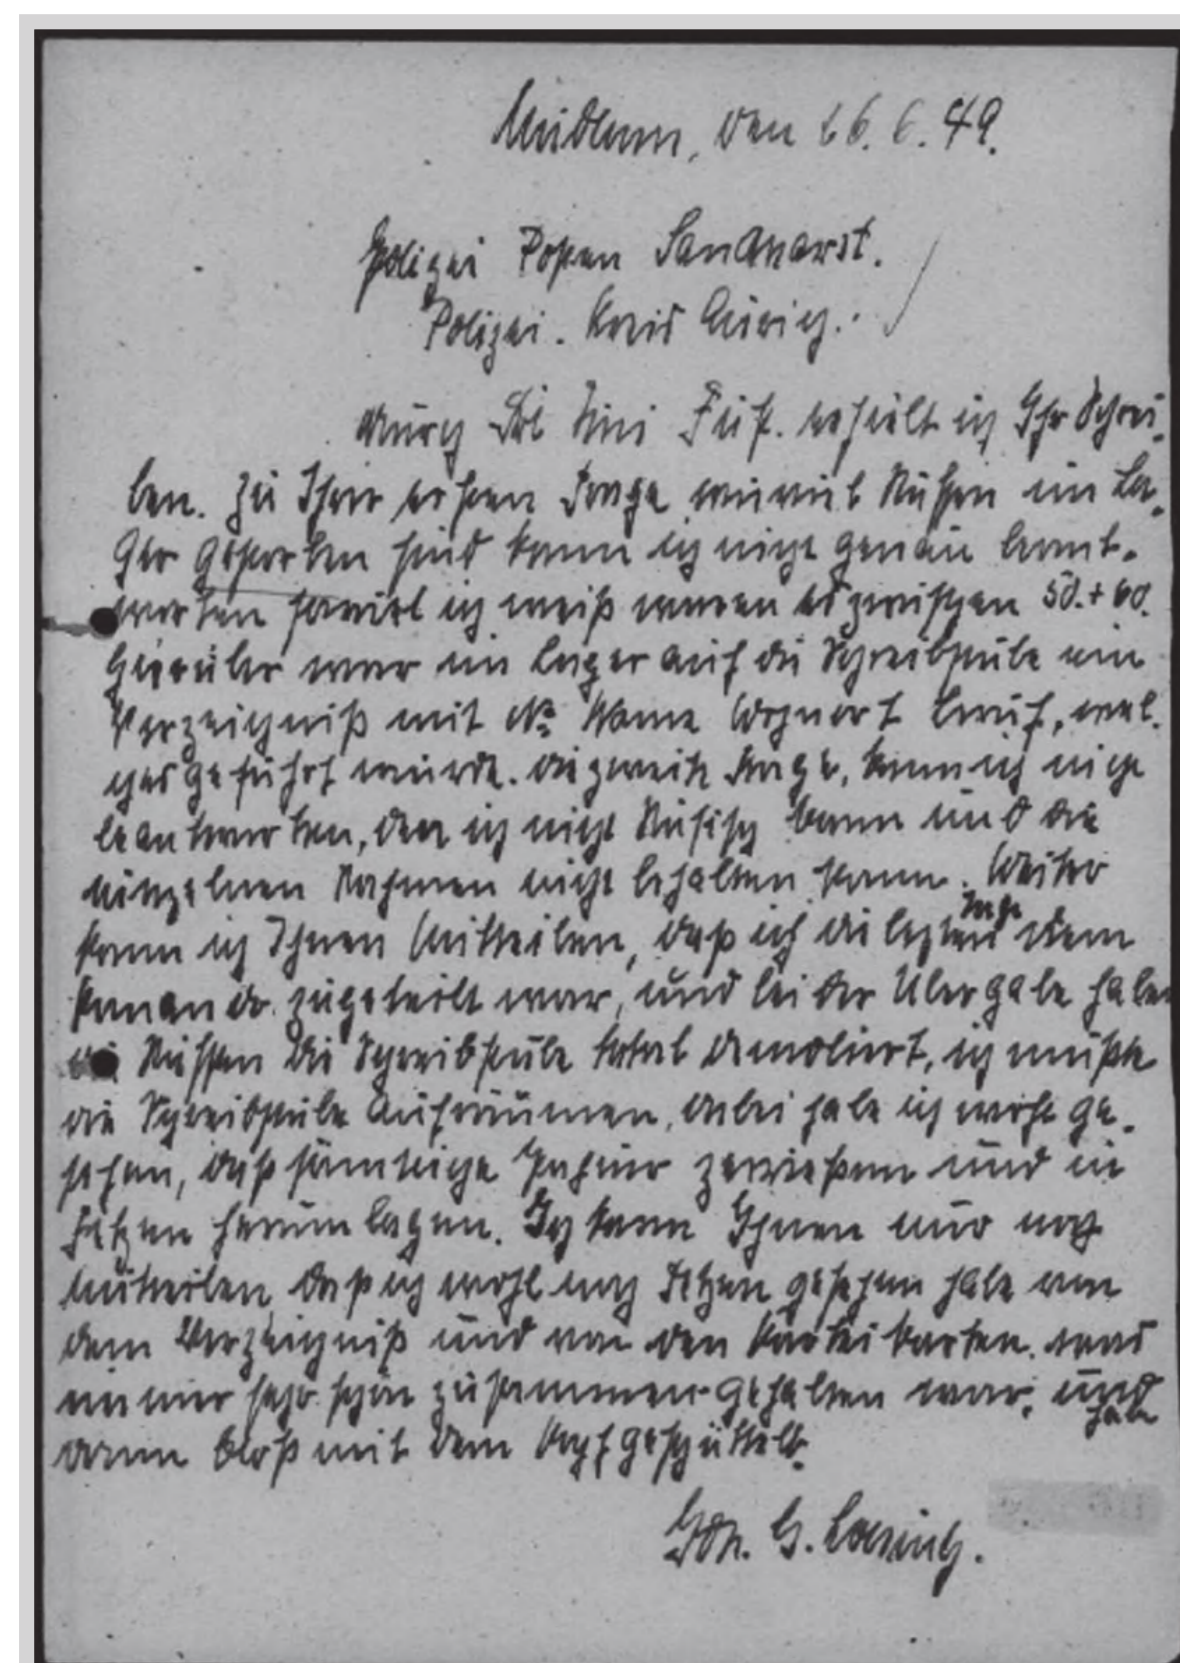 Midlum, den 26. 6. 49.
Polizei Posten Sandhorst.
Polizei. Kreis Aurich.
Durch die Krimi erhielt ich Ihr Schrei-
ben. Zu Ihrer ersten Frage wieviel Russen im La-
ger gestorben sind kann ich nicht genau beant-
worten soviel ich weiß waren es zwischen 50.+60.
hierüber war im Lager auf die Schreibstube ein
Verzeichniß mit No Name Wohnort Beruf, wel-
ches geführt wurde. die zweite Frage, kann ich nicht
beantworten, den ich nicht Rusisch kann und die
einzelnen Nahmen nicht behalten kann. Weiter
kann ich Ihnen Mitteilen, daß ich die lezten Tage dem
Komando zugeteilt war, und bei der Übergabe haben
die Russen die Schreibstube total demoliert, ich mußte
die Schreibstube Aufräumen, dabei habe ich wohl ge-
sehen, daß sämtliche Papier zerrießen und in
Fetzen herum lagen. Ich kann Ihnen nur noch
mitteilen daß ich wohl noch Fetzen gesehen habe von
dem Verzeichniß und von den Karteikarten. was
immer sehr schön zusammen gehalten war, und habe
dann bloß mit dem Kopf geschüttelt.
Joh. G.